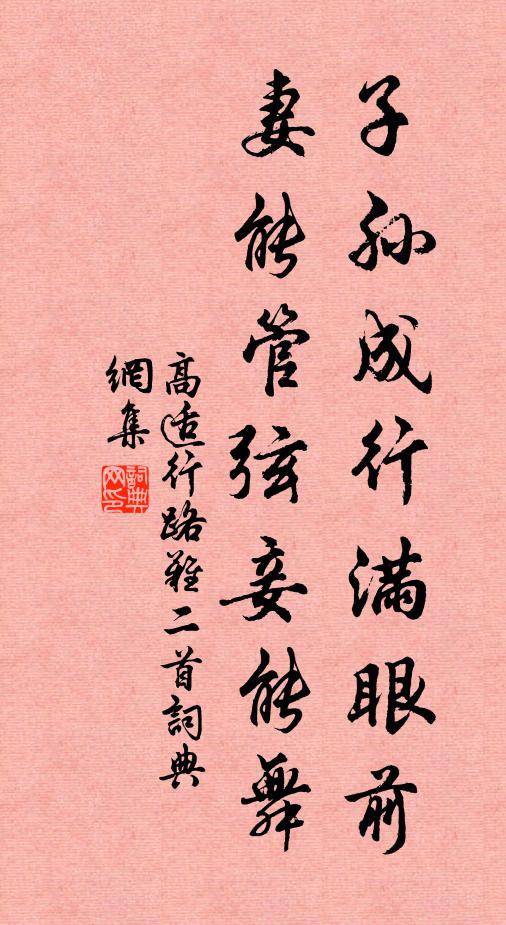 子孙成行满眼前
妻能管弦妾能舞
高适行路難二首詞典
網集
詞典
网印